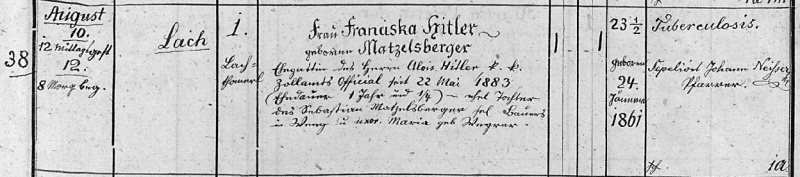 38
August
10.
12 Mittags gest
12.
8 Morg beg.
Lach
1.
Lach-
Frau Franciska Hitler
geborene Matzelsberger
Ehegattin des Herrn Alois Hitler k. k.
Zollamts Official seit 22 Mai 1883
(Ehedauer 1 Jahr und 1/4) – ehel Tochter
des Sebastian Matzelsberger sel Bauers
in Weng u uxor. Maria geb
23 1/2
geboren
24.
Jänner
1861
Tuberculosis.
Johann
Pfarrer.